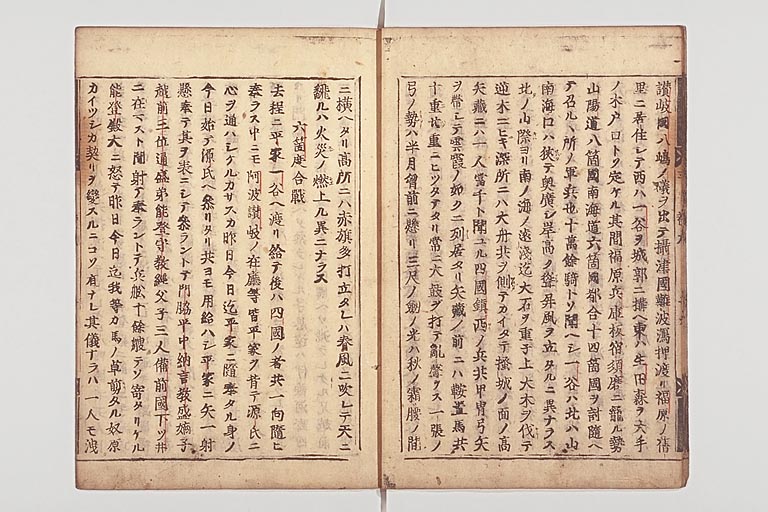 讃岐國八嶋ノ礒ヲ出テ攝津國難波潟押渡リ福原ノ舊
里ニ居住シテ西ハ一谷ヲ城郭ニ構ヘ東ハ生田森ヲ大手
ノ木戸口トソ定ケル其間福原兵庫板宿須磨ニ籠ル勢
山陽道八箇國南海道六箇國都合十四箇國ヲ討隨ヘ
テ召ルヽ所ノ軍兵也十萬餘騎トソ聞ヘシ一谷ハ北ハ山
南海口ハ狹テ奥廣シ岸高ク聳屏風ヲ立タルニ異ナラス
北ノ山際ヨリ南ノ海ノ遠淺迄大石ヲ重子上大木ヲ伐テ
逆木ニヒキ深所ニハ大舟共ヲ側テカイタテ掻城ノ面ノ高
矢藏ニハ一人當千ト聞ユル四國鎮西ノ兵共甲冑弓矢
ヲ帶シテ雲霞ノ如ク二列居タリ矢藏ノ前ニハ鞍置馬共
十重廿重ニヒツタテタリ常ニ大鼓ヲ打テ亂聲クス一張ノ
弓ノ勢ハ半月胸前ニ懸リ三尺ノ劔ノ光ハ秋ノ霜腰ノ間
ニ横ヘタリ高所ニハ赤旗多打立タレハ春風ニ吹レテ天ニ
飜ルハ火災ノ燃上ルニ異ナラス
六箇度合戰
去程ニ平家一谷ヘ渡リ給テ後ハ四國ノ者共一向隨ヒ
奉ラス中ニモ阿波讃岐ノ在廳等皆平家ヲ背テ源氏ニ
心ヲ通ハシケルカサスカ昨日今日迄平家ニ隨奉タル身ノ
今日始テ源氏ヘ参リタリ共ヨモ用給ハシ平家ニ矢一射
懸奉テ其ヲ表ニシテ参ラントテ門脇平中納言教盛嫡子
越前三位通盛弟能登守教經父子三人備前國下ツ井
ニ在マスト聞射テ奉ラントテ兵舩十餘艘テソ寄タリケル
能登殿大ニ怒テ昨日今日迄我等カ馬ノ草剪タル奴原
カイツシカ契リヲ變スルニコソ有ナレ其儀ナラハ一人モ洩